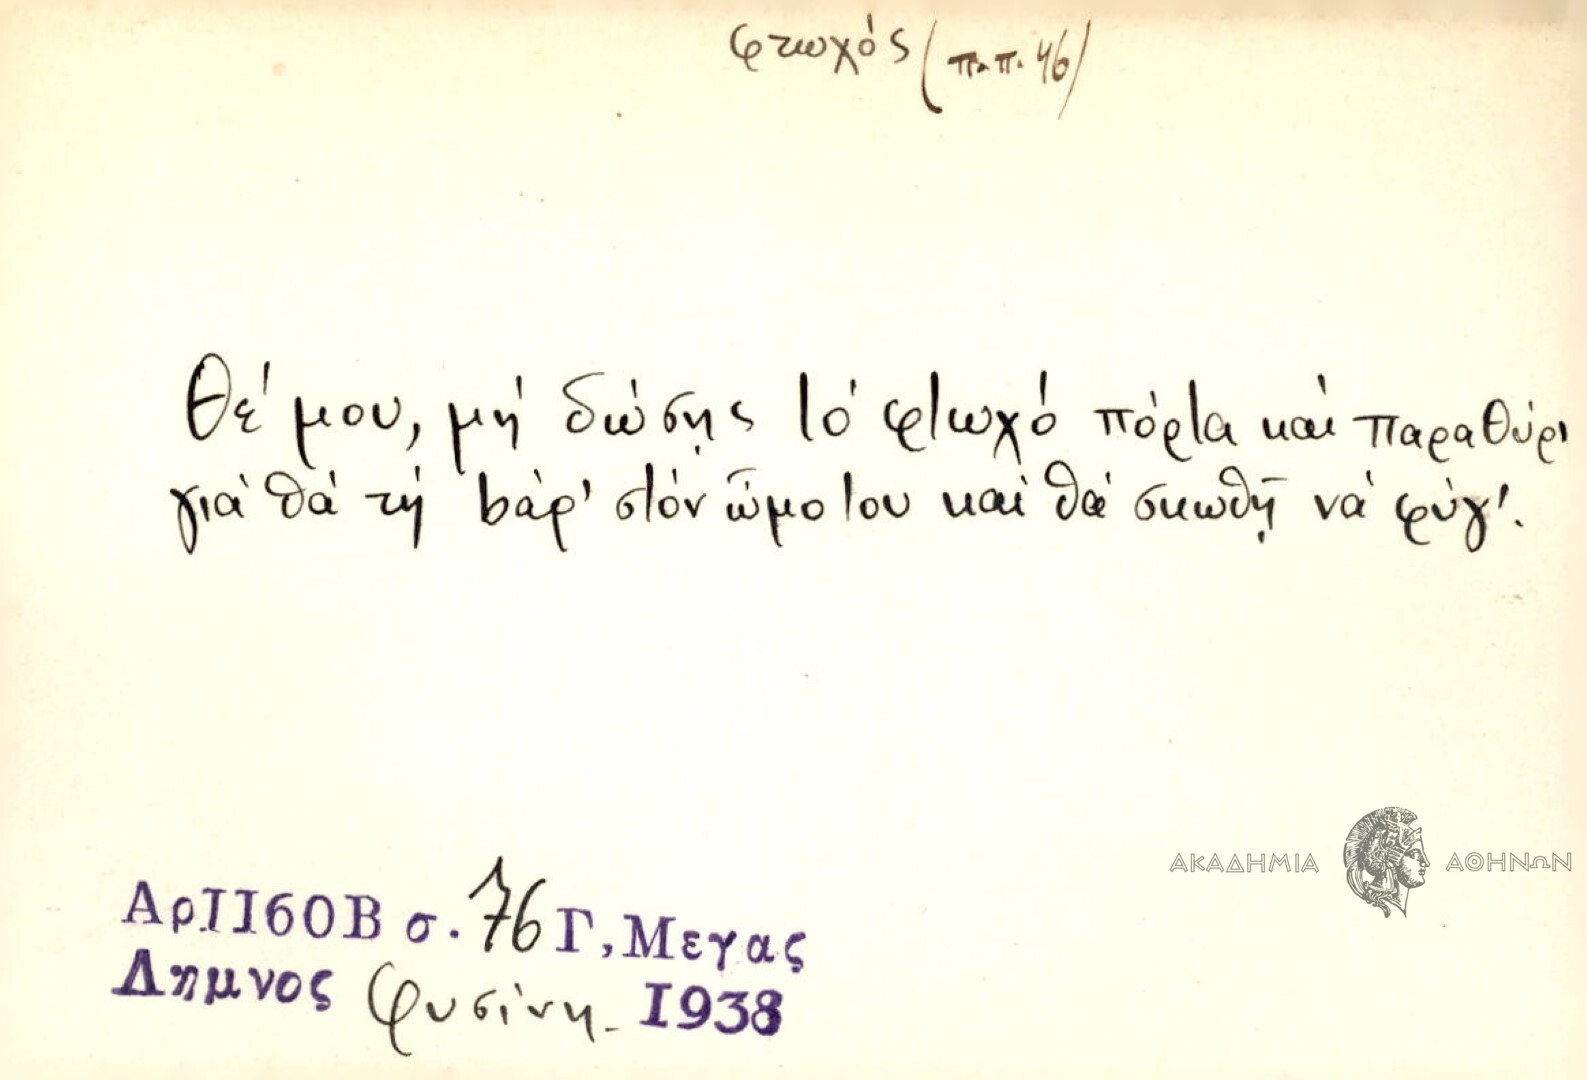 φτωχός (π.π. 46)
Θέ μου, μή δώσῃς τό φτωχό πόρτα καί παραθύρι
γιά θά τή βάρ' στόν ὦμο του καί θά σκωθῇ νά φύγ'.
ΑΚΑΔΗΜΙΑ ΑΘΗΝΩΝ
Αρ.1160Β σ. 76 Γ, Μεγας
Λημνος Φυσίνη - 1938